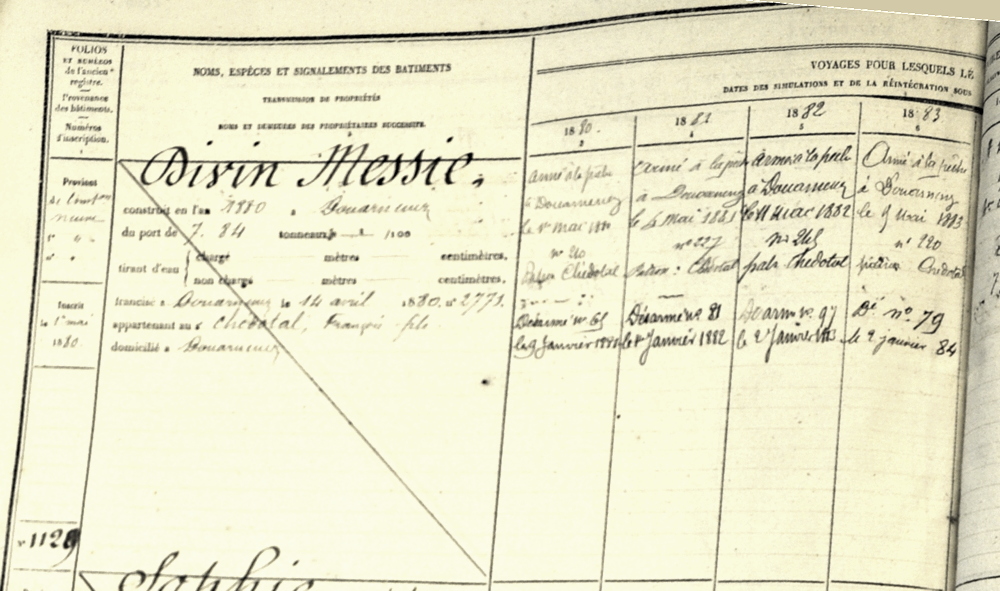 FOLIOS
ET NUMÉROS
de l'ancien
registre.
Provenance
des bâtiments.
Numéros
d'inscription.
1
NOMS, ESPÈCES ET SIGNALEMENTS DES BATIMENTS
TRANSMISSION DE PROPRIÉTÉS
NOMS ET DEMEURES DES PROPRIÉTAIRES SUCCESSIFS.
VOYAGES POUR LESQUELS LE
DATES DES SIMULATIONS ET DE LA RÉINTÉGRATION SOUS
1880.
1881
4
1882
5
1883
6
Provient
Inscrit
le 1er mai
1880.
N° 1129
Divin Messie.
construit en l'an 1880 à Douarnenez
du port de 7. 84 tonneaux /100
tirant d'eau
chargé mètres centimètres,
non chargé mètres centimètres.
francisé à Douarnenez le 14 avril 1880. n° 2771.
appartenant au s. Chedotal, François fils
domicilié à Douarnenez
Armé à la pêche
à Douarnenez
le 1er mai 1880
n° 240
Patron Chedotal
Désarmé n° 65
le 9 Janvier 1881
Armé à la pêche
à Douarnenez
le 4 mai 1881
n° 227
Patron : Chedotal
Désarmé n° 81
le 4 Janvier 1882
Armé à la pêche
à Douarnenez
le 11 mai 1882
n° 245
patr Chedotal
Désarm n° 97
le 2 Janvier 1883
Armé à la pêche
à Douarnenez
le 9 Mai 1883
n° 220
patron Chedotal
Dé n° 79
le 2 janvier 84
Sophie